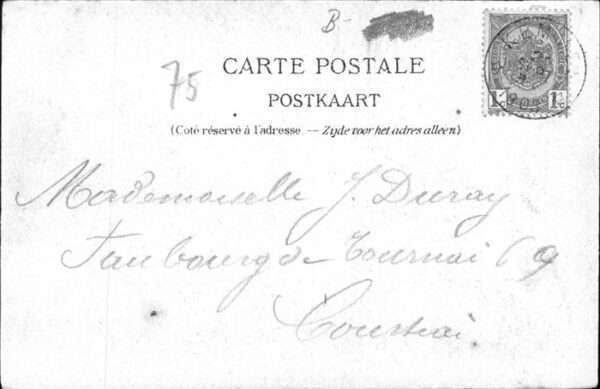 B-
75
CARTE POSTALE
POSTKAART
(Coté réservé à l'adresse. — Zijde voor het adres alleen)
Mademoiselle J. Duray
Faubourg de Tournai 69
Courtrai.
1 1